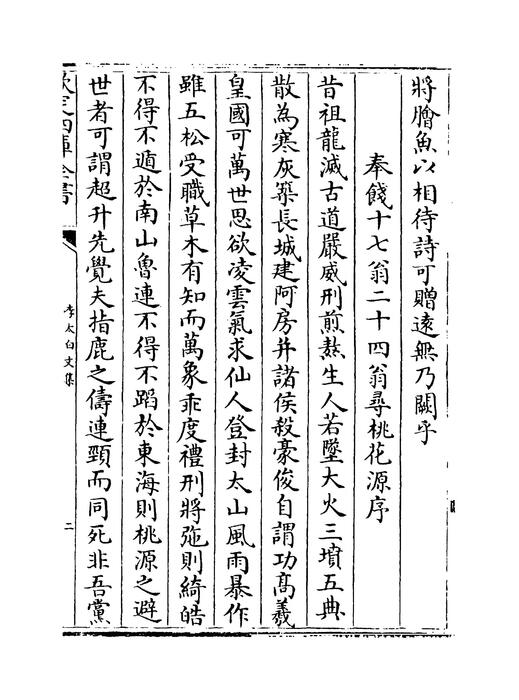 將膾魚以相待詩可贈遠無乃闕乎
奉餞十七翁二十四翁尋桃花源序
昔祖龍滅古道嚴威刑煎熬生人若墜大火三墳五典
散為寒灰築長城建阿房并諸侯殺豪俊自謂功高羲
皇國可萬世思欲凌雲氣求仙人登封太山風雨暴作
雖五松受職草木有知而萬象乖度禮刑將弛則綺皓
不得不遁於南山魯連不得不蹈於東海則桃源之避
世者可謂超升先覺夫指鹿之儔連頸而同死非吾黨
欽定四庫全書
李太白文集
二